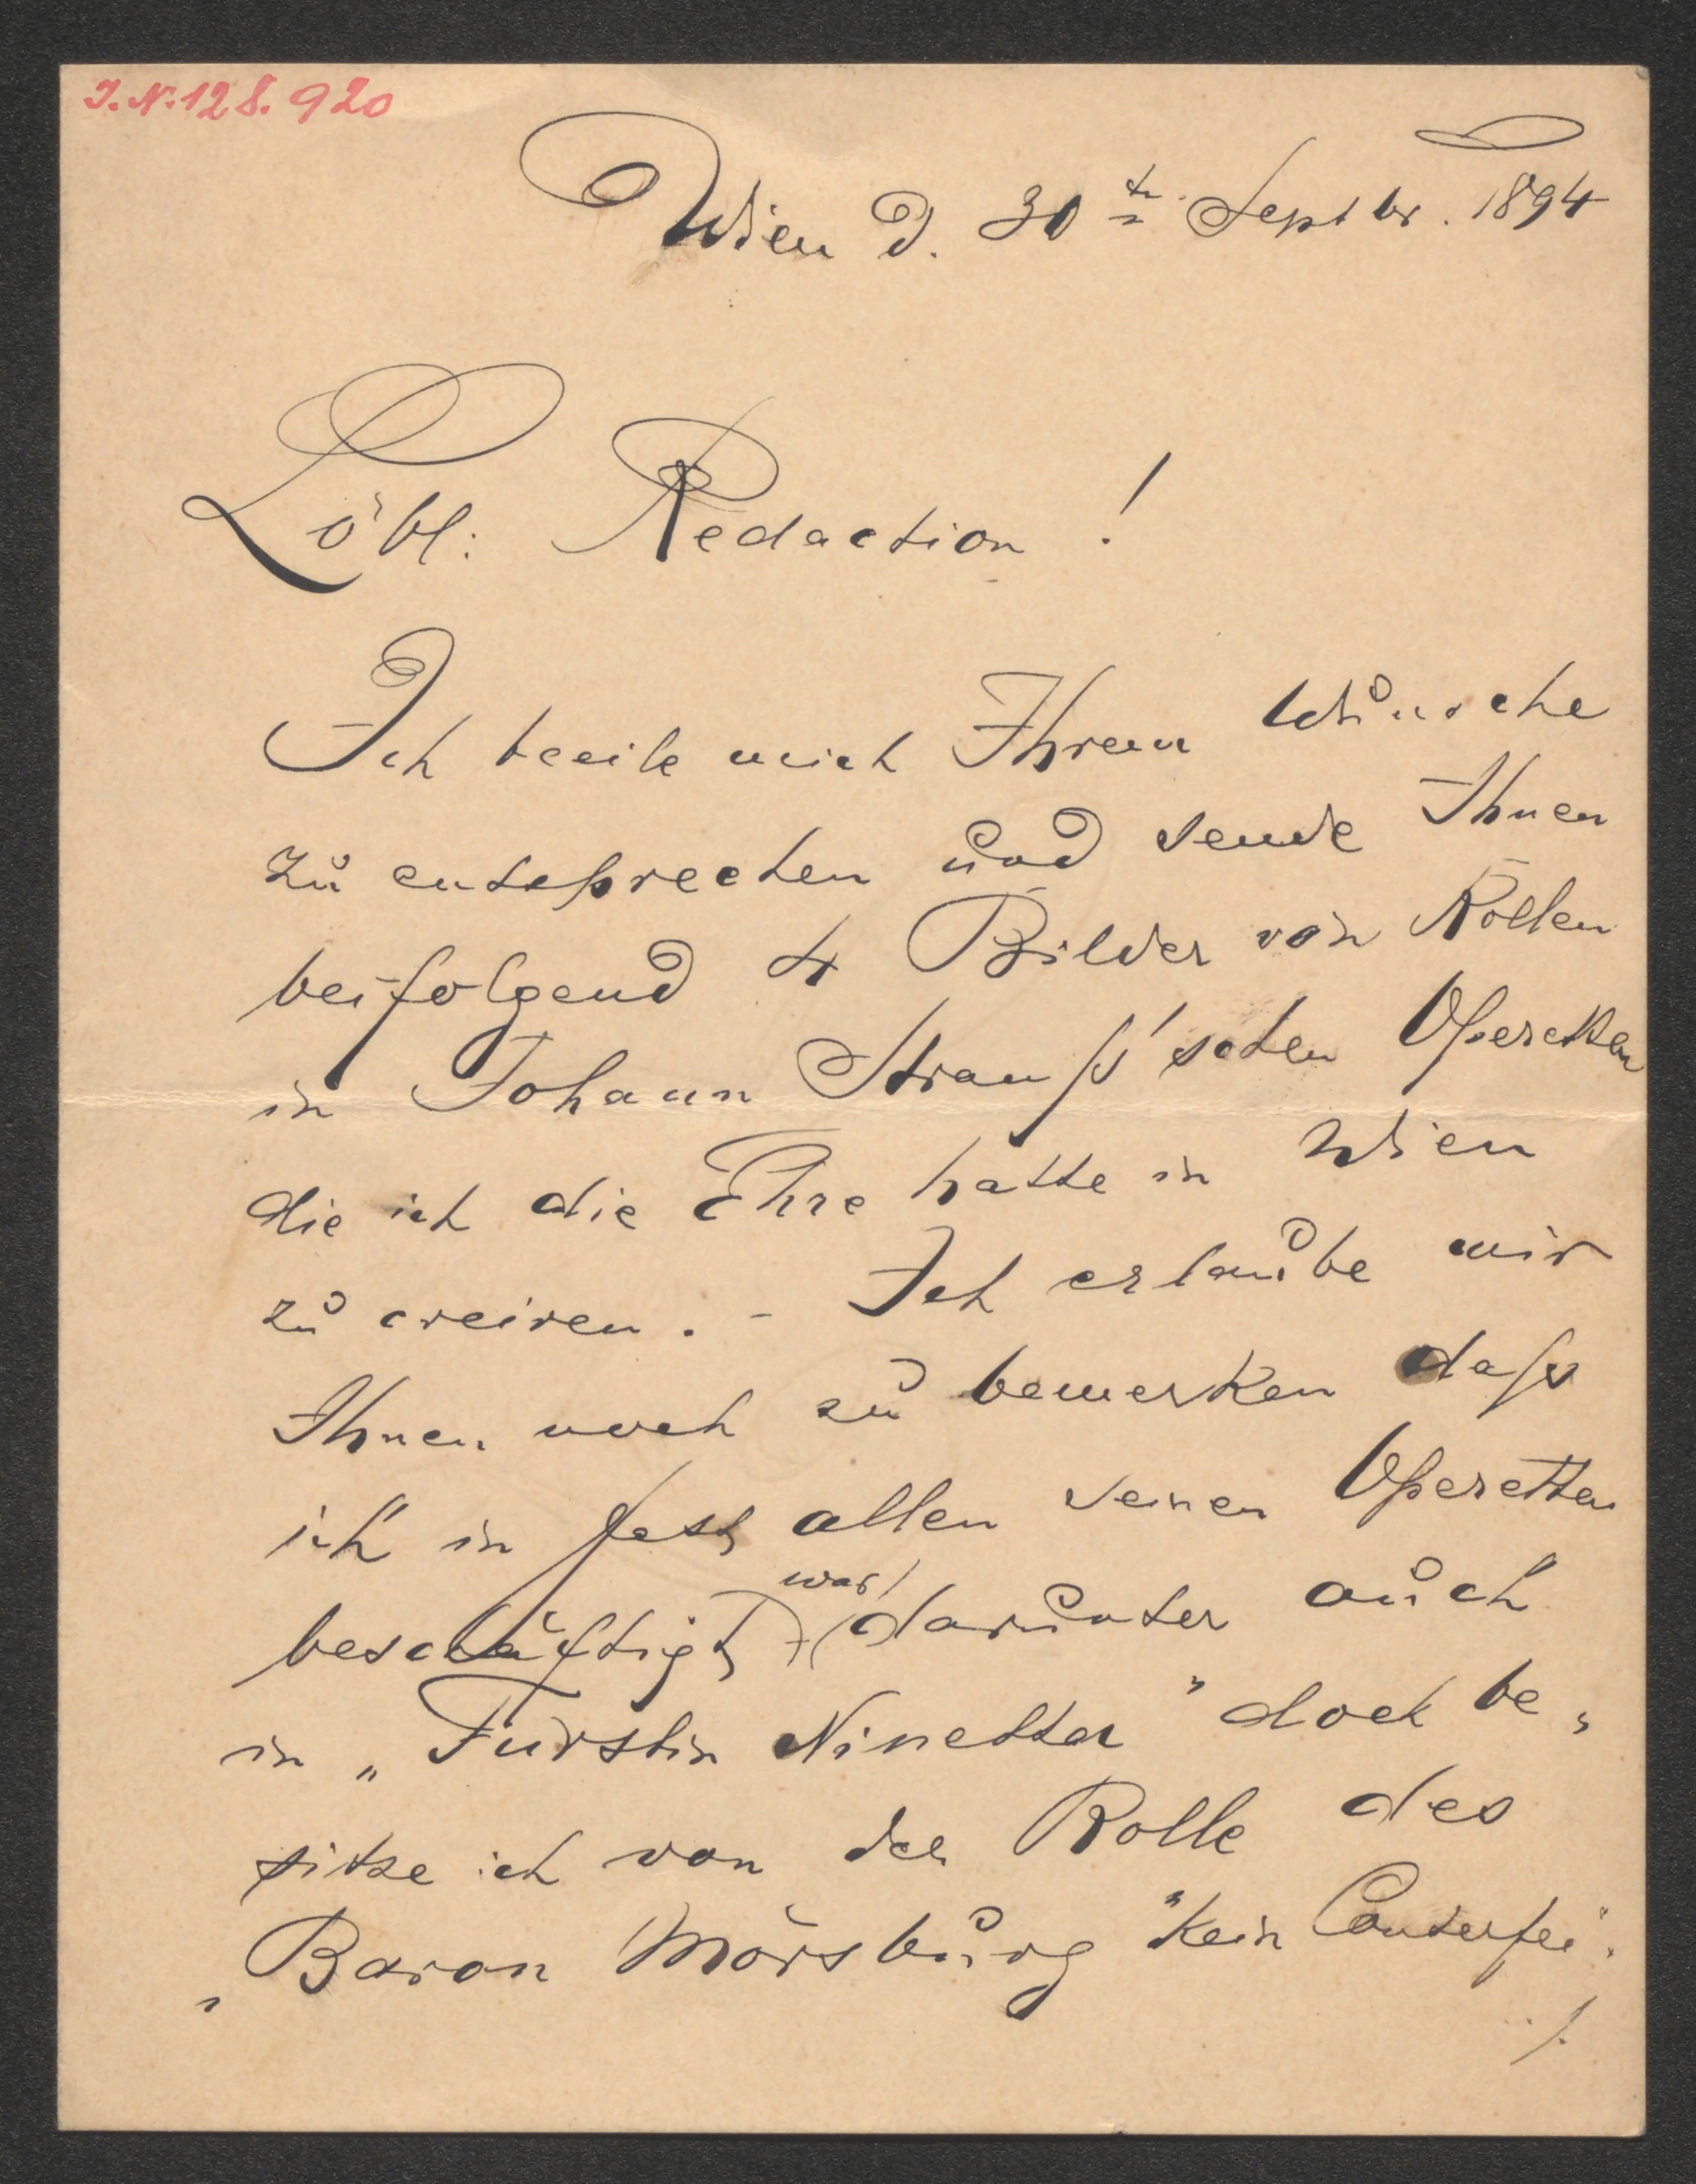 J. N. 128.920
Wien d. 30t Septbr. 1894
Löbl: Redaction!
Ich beeile mich Ihrem Wunsche
zu entsprechen und sende Ihnen
beifolgend 4 Bilder von Rollen
in Johann Strauß'schen Operetten
die ich die Ehre hatte in Wien
zu creiren. - Ich erlaube mir
Ihnen noch zu bemerken daß
ich in fast allen seinen Operetten
war
beschäftigt (darunter auch
in „Fürstin Ninetta" doch be„
sitze ich von der Rolle des
„Baron Mörsburg" kein Conterfei.
./.